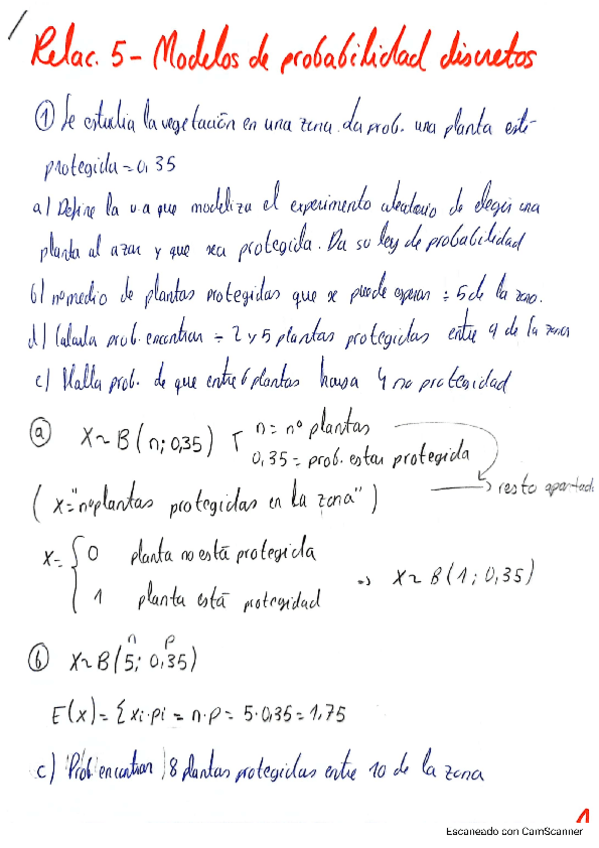 Relac. 5 - Modelos de probabilidad discretos
① Se estudia la vegetación en una zona. La prob. una planta esté
protegida = 0,35
a) Define la v.a que modeliza el experimento aleatorio de elegir una
planta al azar y que sea protegida. Da su ley de probabilidad
b) nº medio de plantas protegidas que se puede esperar ÷ 5 de la zona.
d) Calcula prob. encontrar ÷ 2 y 5 plantas protegidas entre 9 de la zona
e) Halla prob. de que entre 6 plantas haya 4 no protegidad
ⓐ X~B(n; 0,35) n = nº plantas
0,35 = prob. estar protegida
(X="nº plantas protegidas en la zona") → resto apartad
X= { 0 planta no está protegida
1 planta está protegidad ⇒ X~B(1; 0,35)
n p
ⓑ X~B(5; 0,35)
E(x) = Σ xi·pi = n·p = 5·0,35 = 1,75
c) Prob encontrar 8 plantas protegidas entre 10 de la zona
1
Escaneado con CamScanner